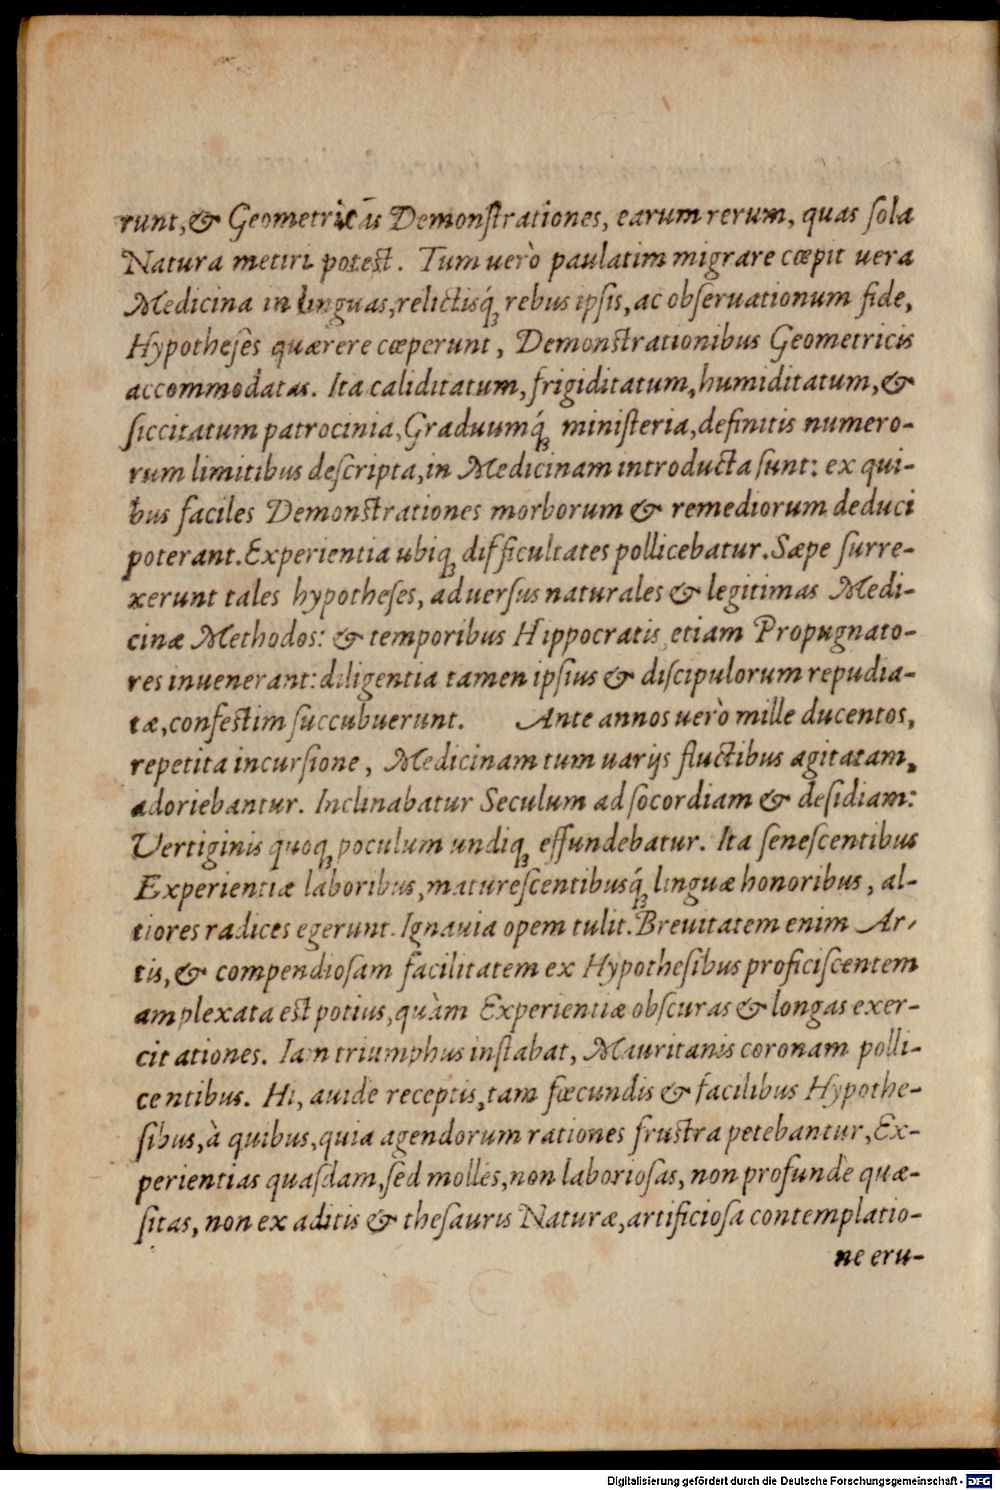 runt, & Geometricās Demonſtrationes, earum rerum, quas ſola
Natura metiri potest. Tum uerò paulatim migrare cœpit uera
Medicina in linguas, relictisq́ꝫ rebus ipſis, ac obſeruationum fide,
Hypotheſes quærere cœperunt, Demonstrationibus Geometricis
accommodatas. Ita caliditatum, frigiditatum, humiditatum, &
ſiccitatum patrocinia, Graduumq́ꝫ miniſteria, definitis numero-
rum limitibus deſcripta, in Medicinam introducta ſunt: ex qui-
bus faciles Demonstrationes morborum & remediorum deduci
poterant. Experientia ubiqꝫ difficultates pollicebatur. Sæpe ſurre-
xerunt tales hypotheſes, aduerſus naturales & legitimas Medi-
cinæ Methodos: & temporibus Hippocratis etiam Propugnato-
res inuenerant: diligentia tamen ipſius & diſcipulorum repudia-
tæ, confestim ſuccubuerunt. Ante annos uerò mille ducentos,
repetita incurſione, Medicinam tum uarijs fluctibus agitatam,
adoriebantur. Inclinabatur Seculum ad ſocordiam & deſidiam:
Vertiginis quoqꝫ poculum undiqꝫ effundebatur. Ita ſeneſcentibus
Experientiæ laboribus, matureſcentibusq́ꝫ linguæ honoribus, al-
tiores radices egerunt. Ignauia opem tulit. Breuitatem enim Ar-
tis, & compendioſam facilitatem ex Hypotheſibus proficiſcentem
amplexata est potius, quàm Experientiæ obſcuras & longas exer-
citationes. Iam triumphus inſtabat, Mauritanis coronam polli-
centibus. Hi, auidè receptis, tam fœcundis & facilibus Hypothe-
ſibus, à quibus, quia agendorum rationes frustra petebantur, Ex-
perientias quaſdam, ſed molles, non laborioſas, non profundè quæ-
ſitas, non ex aditis & theſauris Naturæ, artificioſa contemplatio-
ne eru-
Digitalisierung gefördert durch die Deutsche Forschungsgemeinschaft - DFG